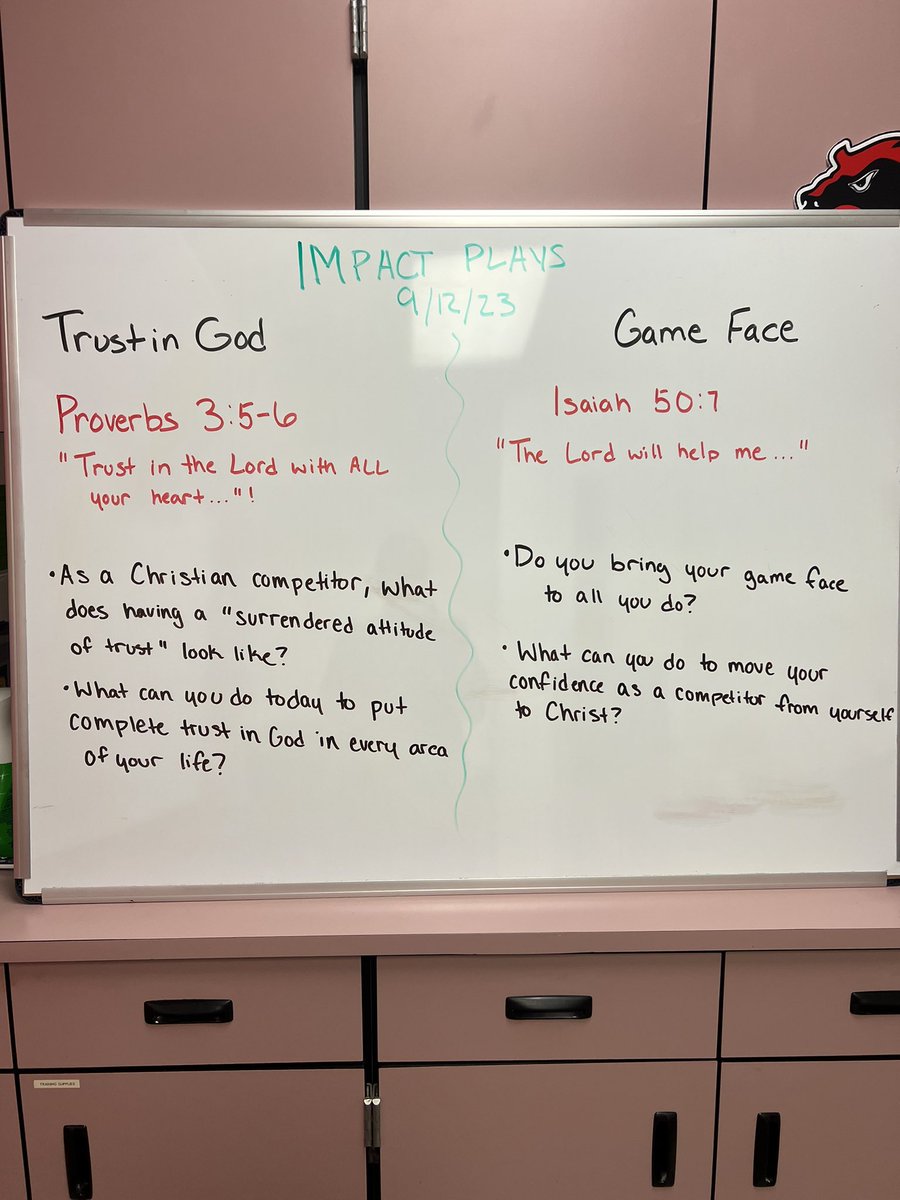 IMPACT PLAYS
9/12/23
Trust in God
Proverbs 3:5-6
"Trust in the Lord with ALL
your heart..."!
•As a Christian competitor, what
does having a "surrendered attitude
of trust" look like?
•What can you do today to put
complete trust in God in every area
of your life?
Game Face
Isaiah 50:7
"The Lord will help me..."
•Do you bring your game face
to all you do?
•What can you do to move your
confidence as a competitor from yourself
to Christ?
TRAINING SUPPLIES